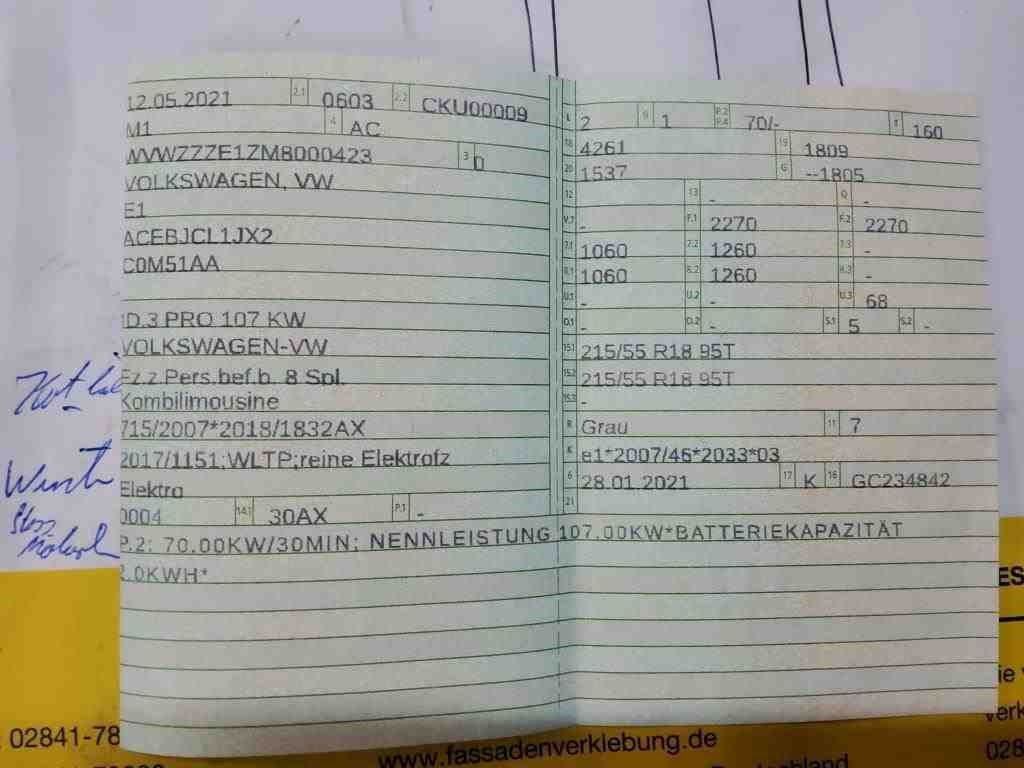 12.05.2021 2.1 0603 2.2 CKU00009
M1 4 AC
WVWZZZE1ZM8000423 3 0
VOLKSWAGEN, VW
E1
ACEBJCL1JX2
C0M51AA
ID.3 PRO 107 KW
VOLKSWAGEN-VW
Fz.z.Pers.bef.b. 8 Spl.
Kombilimousine
715/2007*2018/1832AX
2017/1151;WLTP;reine Elektrofz
Elektro
0004 14.1 30AX P.1 -
L 2 9 1 P.2 P.4 70/- T 160
18 4261 19 1809
20 1537 G --1805
12 - 13 - Q -
V.7 - F.1 2270 F.2 2270
7.1 1060 7.2 1260 7.3 -
8.1 1060 8.2 1260 8.3 -
U.1 - U.2 - U.3 68
O.1 - O.2 - S.1 5 S.2 -
15.1 215/55 R18 95T
15.2 215/55 R18 95T
15.3 -
R Grau 11 7
K e1*2007/46*2033*03
6 28.01.2021 17 K 16 GC234842
21
P.2: 70.00KW/30MIN; NENNLEISTUNG 107.00KW*BATTERIEKAPAZITÄT
2.0KWH*
02841-78
www.fassadenverklebung.de
ES
ie v
verk
028